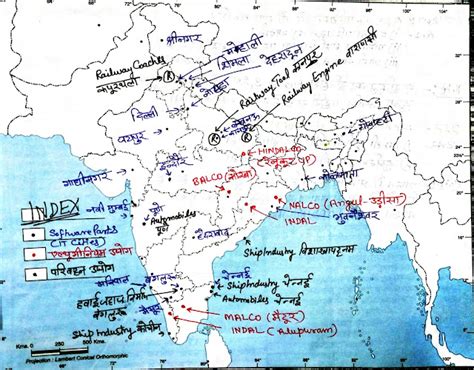 श्रीनगर
मोहाली
शिमला
देहरादून
Railway Coaches
कपूरथला
R
नोएडा
Railway Tool कानपुर
Railway Engine वाराणसी
दिल्ली
लखनऊ
R
R
जयपुर
गुवाहाटी
HINDALCO
(रेनुकूट UP)
इंदौर
BALCO (कोरबा)
गांधीनगर
कोलकाता
NALCO (Angul-उड़ीसा)
INDAL
भुवनेश्वर
INDEX
नवी मुम्बई
पुणे
Automobiles
पुणे
Software Parks
(IT Cities)
एल्युमीनियम उद्योग
परिवहन उद्योग
हैदराबाद
Ship Industry विशाखापट्टनम
बंगलुरु
चेन्नई
Ship Industry चेन्नई
Automobiles चेन्नई
हवाई जहाज निर्माण
बंगलुरु
मैसूर
MALCO (मैटूर)
INDAL (Alupuram)
Ship Industry कोचीन
Kms. 250 0 500 Kms.
Projection : Lambert Conical Orthomorphic